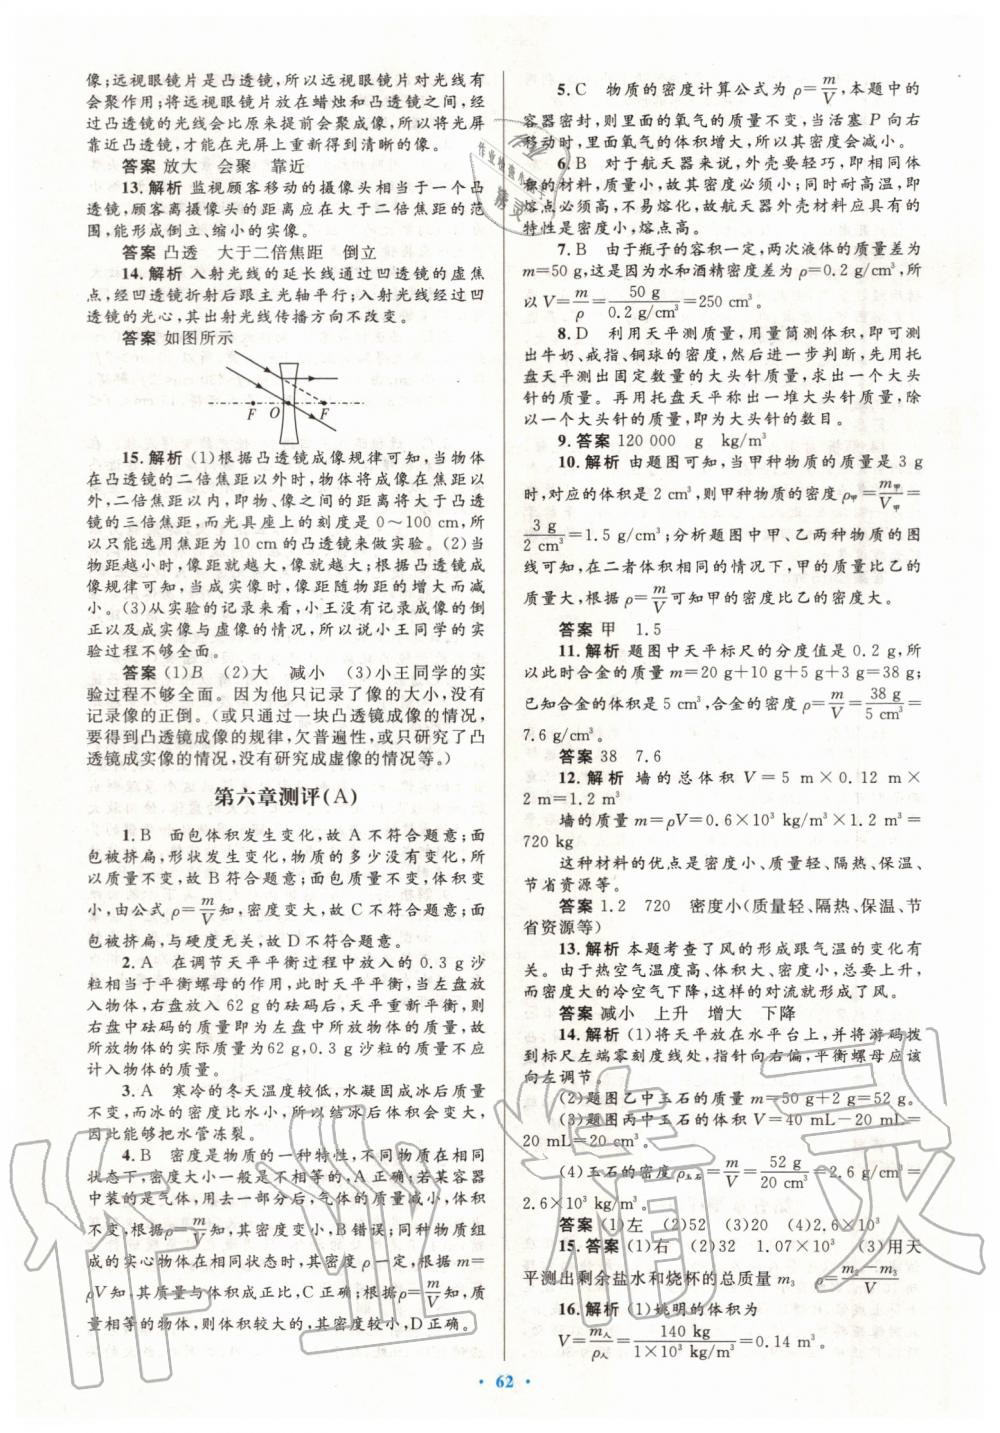 像;远视眼镜片是凸透镜,所以远视眼镜片对光线有
会聚作用;将远视眼镜片放在蜡烛和凸透镜之间,经
过凸透镜的光线会比原来提前会聚成像,所以将光屏
靠近凸透镜,才能在光屏上重新得到清晰的像。
答案 放大 会聚 靠近
13.解析 监视顾客移动的摄像头相当于一个凸
透镜,顾客离摄像头的距离应在大于二倍焦距的范
围,能形成倒立、缩小的实像。
答案 凸透 大于二倍焦距 倒立
14.解析 入射光线的延长线通过凹透镜的虚焦
点,经凹透镜折射后跟主光轴平行;入射光线经过凹
透镜的光心,其出射光线传播方向不改变。
答案 如图所示
F O F
15.解析 (1)根据凸透镜成像规律可知,当物体
在凸透镜的二倍焦距以外时,物体将成像在焦距以
外,二倍焦距以内,即物、像之间的距离将大于凸透
镜的三倍焦距,而光具座上的刻度是0~100 cm,所
以只能选用焦距为10 cm的凸透镜来做实验。(2)当
物距越小时,像距就越大,像就越大;根据凸透镜成
像规律可知,当成实像时,像距随物距的增大而减
小。(3)从实验的记录来看,小王没有记录成像的倒
正以及成实像与虚像的情况,所以说小王同学的实
验过程不够全面。
答案 (1)B (2)大 减小 (3)小王同学的实
验过程不够全面。因为他只记录了像的大小,没有
记录像的正倒。(或只通过一块凸透镜成像的情况,
要得到凸透镜成像的规律,欠普遍性,或只研究了凸
透镜成实像的情况,没有研究成虚像的情况等。)
第六章测评(A)
1.B 面包体积发生变化,故A不符合题意;面
包被挤扁,形状发生变化,物质的多少没有变化,所
以质量不变,故B符合题意;面包质量不变,体积变
小,由公式ρ=m/V知,密度变大,故C不符合题意;面
包被挤扁,与硬度无关,故D不符合题意。
2.A 在调节天平平衡过程中放入的0.3 g沙
粒相当于平衡螺母的作用,此时天平平衡,当左盘放
入物体,右盘放入62 g的砝码后,天平重新平衡,则
右盘中砝码的质量即为左盘中所放物体的质量,故
所放物体的实际质量为62 g,0.3 g沙粒的质量不应
计入物体的质量。
3.A 寒冷的冬天温度较低,水凝固成冰后质量
不变,而冰的密度比水小,所以结冰后体积会变大,
因此能够把水管冻裂。
4.B 密度是物质的一种特性,不同物质在相同
状态下,密度大小一般是不相等的,A正确;若某容器
中装的是气体,用去一部分后,气体的质量减小,体积
不变,根据ρ=m/V知,其密度变小,B错误;同种物质组
成的实心物体在相同状态下,其密度一定,根据m=
ρV知,其质量与体积成正比,C正确;根据ρ=m/V知,质
量相等的物体,则体积较大的,其密度较小,D正确。
5.C 物质的密度计算公式为ρ=m/V,本题中的
容器密封,则里面的氧气的质量不变,当活塞P向右
移动时,里面氧气的体积增大,所以其密度会减小。
6.B 对于航天器来说,外壳要轻巧,即相同体
积的材料,质量小,故其密度必须小;同时耐高温,即
熔点必须高,不易熔化,故航天器外壳材料应具有的
特性是密度小,熔点高。
7.B 由于瓶子的容积一定,两次液体的质量差为
m=50 g,这是因为水和酒精密度差为ρ=0.2 g/cm³,所
以V=m/ρ=50 g/0.2 g/cm³=250 cm³。
8.D 利用天平测质量,用量筒测体积,即可测
出牛奶、戒指、铜球的密度,然后进一步判断,先用托
盘天平测出固定数量的大头针质量,求出一个大头
针的质量。再用托盘天平称出一堆大头针的质量,除
以一个大头针的质量,即为大头针的数目。
9.答案 120 000 g kg/m³
10.解析 由题图可知,当甲种物质的质量是3 g
时,对应的体积是2 cm³,则甲种物质的密度ρ甲=m甲/V甲=
3 g/2 cm³=1.5 g/cm³;分析题图中甲、乙两种物质的图
线可知,在二者体积相同的情况下,甲的质量比乙的
质量大,根据ρ=m/V可知甲的密度比乙的密度大。
答案 甲 1.5
11.解析 题图中天平标尺的分度值是0.2 g,所
以此时合金的质量m=20 g+10 g+5 g+3 g=38 g;
已知合金的体积是5 cm³,合金的密度ρ=m/V=38 g/5 cm³=
7.6 g/cm³。
答案 38 7.6
12.解析 墙的总体积V=5 m×0.12 m×
2 m=1.2 m³
墙的质量m=ρV=0.6×10³ kg/m³×1.2 m³=
720 kg
这种材料的优点是密度小、质量轻、隔热、保温、
节省资源等。
答案 1.2 720 密度小(质量轻、隔热、保温、节
省资源等)
13.解析 本题考查了风的形成跟气温的变化有
关。由于热空气温度高、体积大、密度小,总要上升,
而密度大的冷空气下降,这样的对流就形成了风。
答案 减小 上升 增大 下降
14.解析 (1)将天平放在水平台上,并将游码拨
到标尺左端零刻度线处,指针向右偏,平衡螺母应该
向左调节。
(2)题图乙中玉石的质量m=50 g+2 g=52 g
(3)题图丙中玉石的体积V=40 mL-20 mL=
20 mL=20 cm³
(4)玉石的密度ρ玉石=m/V=52 g/20 cm³=2.6 g/cm³=
2.6×10³ kg/m³
答案 (1)左 (2)52 (3)20 (4)2.6×10³
15.答案 (1)右 (2)32 1.07×10³ (3)用天
平测出剩余盐水和烧杯的总质量m₃ ρ=m₂-m₃/V
16.解析 (1)姚明的体积为
V=m人/ρ人=140 kg/1×10³ kg/m³=0.14 m³。
· 62 ·
作业精灵